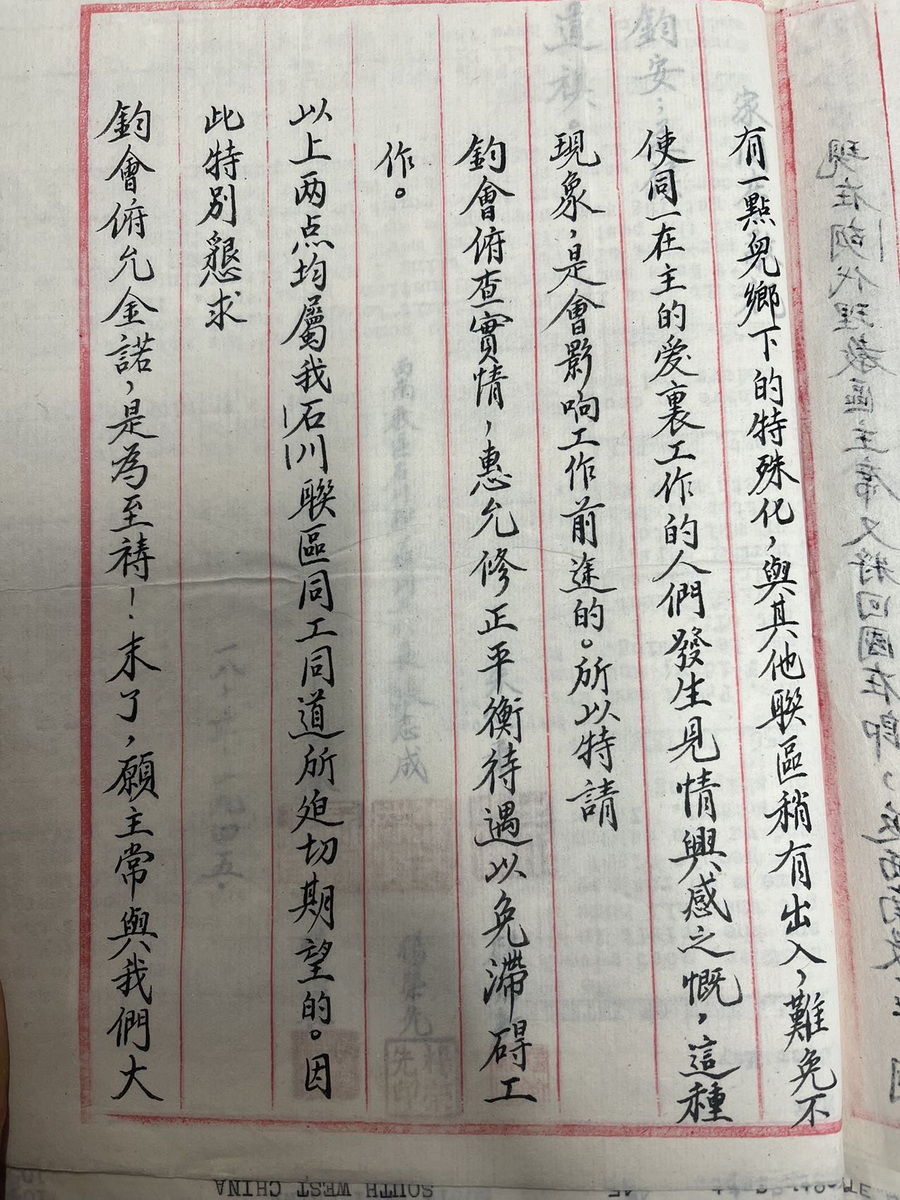 有一點兒鄉下的特殊化，與其他聯區稍有出入，難免不
使同一在主的愛裏工作的人們發生見情興感之慨，這種
現象，是會影响工作前途的。所以特請
鈞會俯查實情，惠允修正平衡待遇以免滯碍工
作。
以上两点均屬我石川聯區同工同道所廹切期望的。因
此特別懇求
鈞會俯允金諾，是為至禱！末了，願主常與我們大
現在胡代理教區主席又將回國在即
鈞安
道祺。
家
志成
一九四五.
SOUTH WEST CHINA